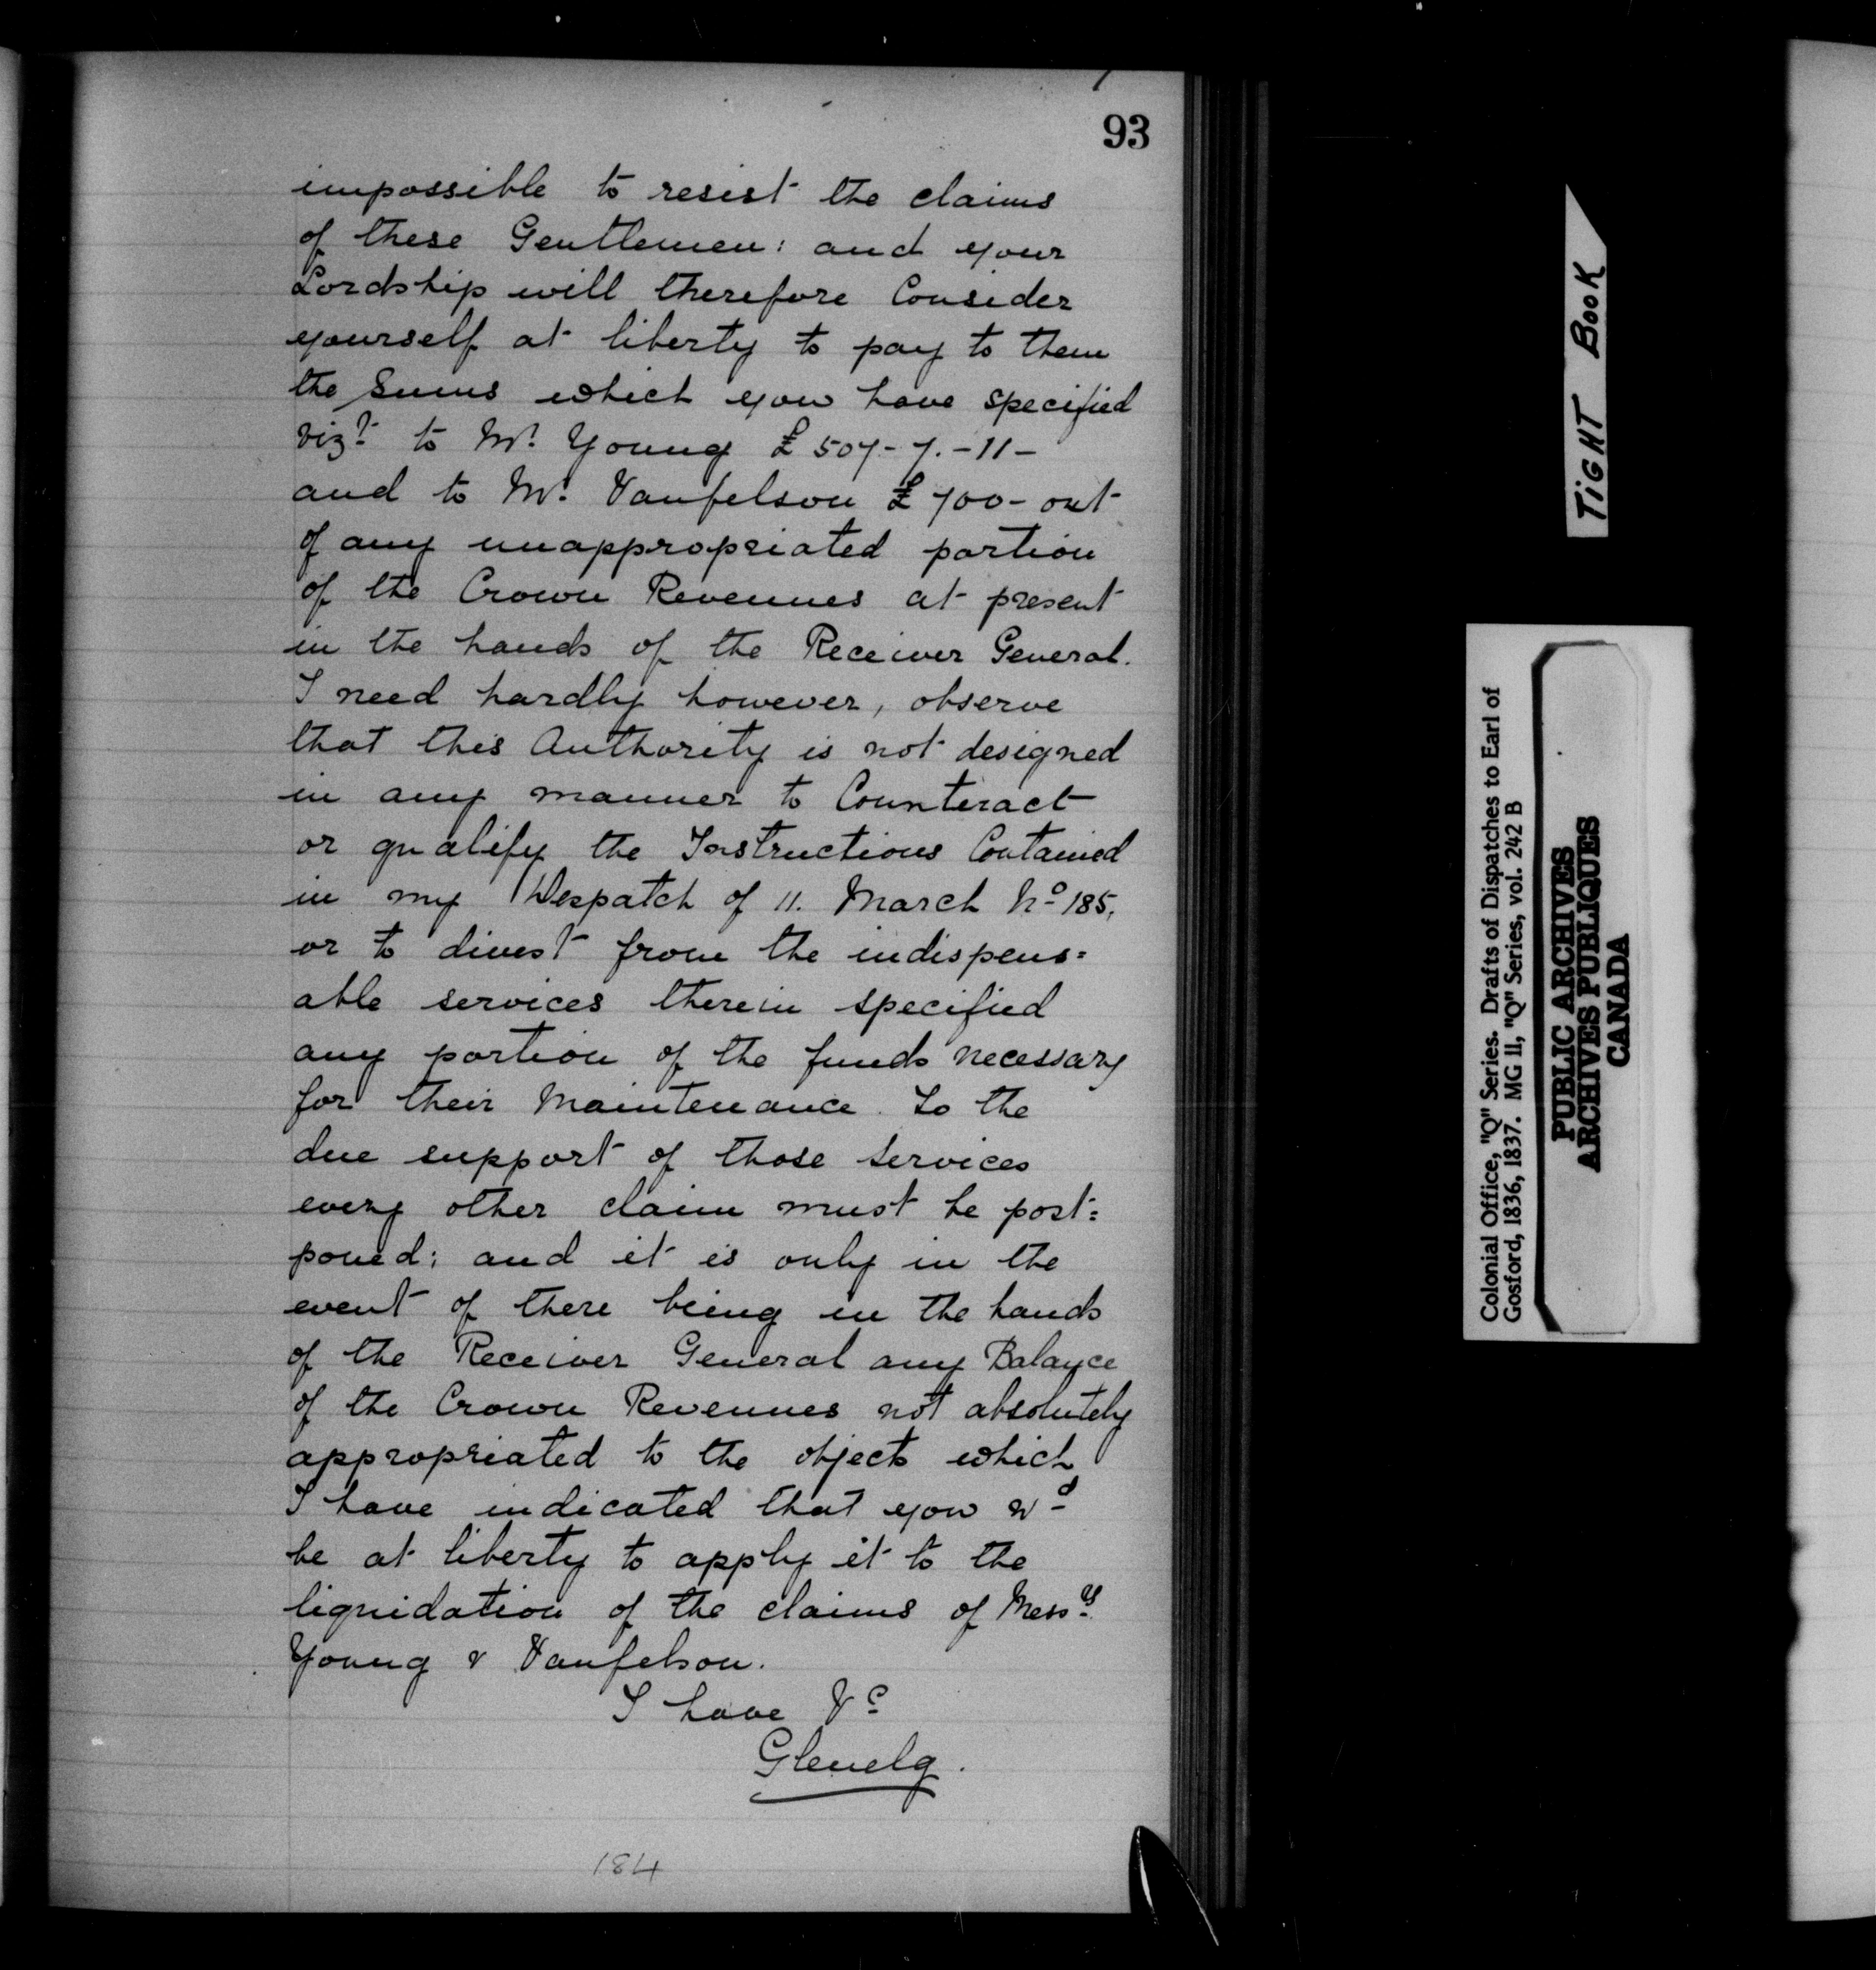 93
impossible to resist the claims
of these Gentlemen: and your
Lordship will therefore Consider
yourself at liberty to pay to them
the Sums which you have specified
vizt to Mr. Young £507-7.-11-
and to Mr. Vanfelson £700- out
of any unappropriated portion
of the Crown Revenues at present
in the hands of the Receiver General.
I need hardly however, observe
that this Authority is not designed
in any manner to Counteract
or qualify the Instructions Contained
in my Despatch of 11. March No 185,
or to divest from the indispens=
able services therein specified
any portion of the funds necessary
for their Maintenance. To the
due support of those services
every other claim must be post=
poned; and it is only in the
event of there being in the hands
of the Receiver General any Balance
of the Crown Revenues not absolutely
appropriated to the objects which
I have indicated that you wd
be at liberty to apply it to the
liquidation of the claims of Messrs
Young & Vanfelson.
I have &c
Glenelg.
184
TIGHT BOOK
Colonial Office, "Q" Series. Drafts of Dispatches to Earl of
Gosford, 1836, 1837. MG 11, "Q" Series, vol. 242 B
PUBLIC ARCHIVES
ARCHIVES PUBLIQUES
CANADA